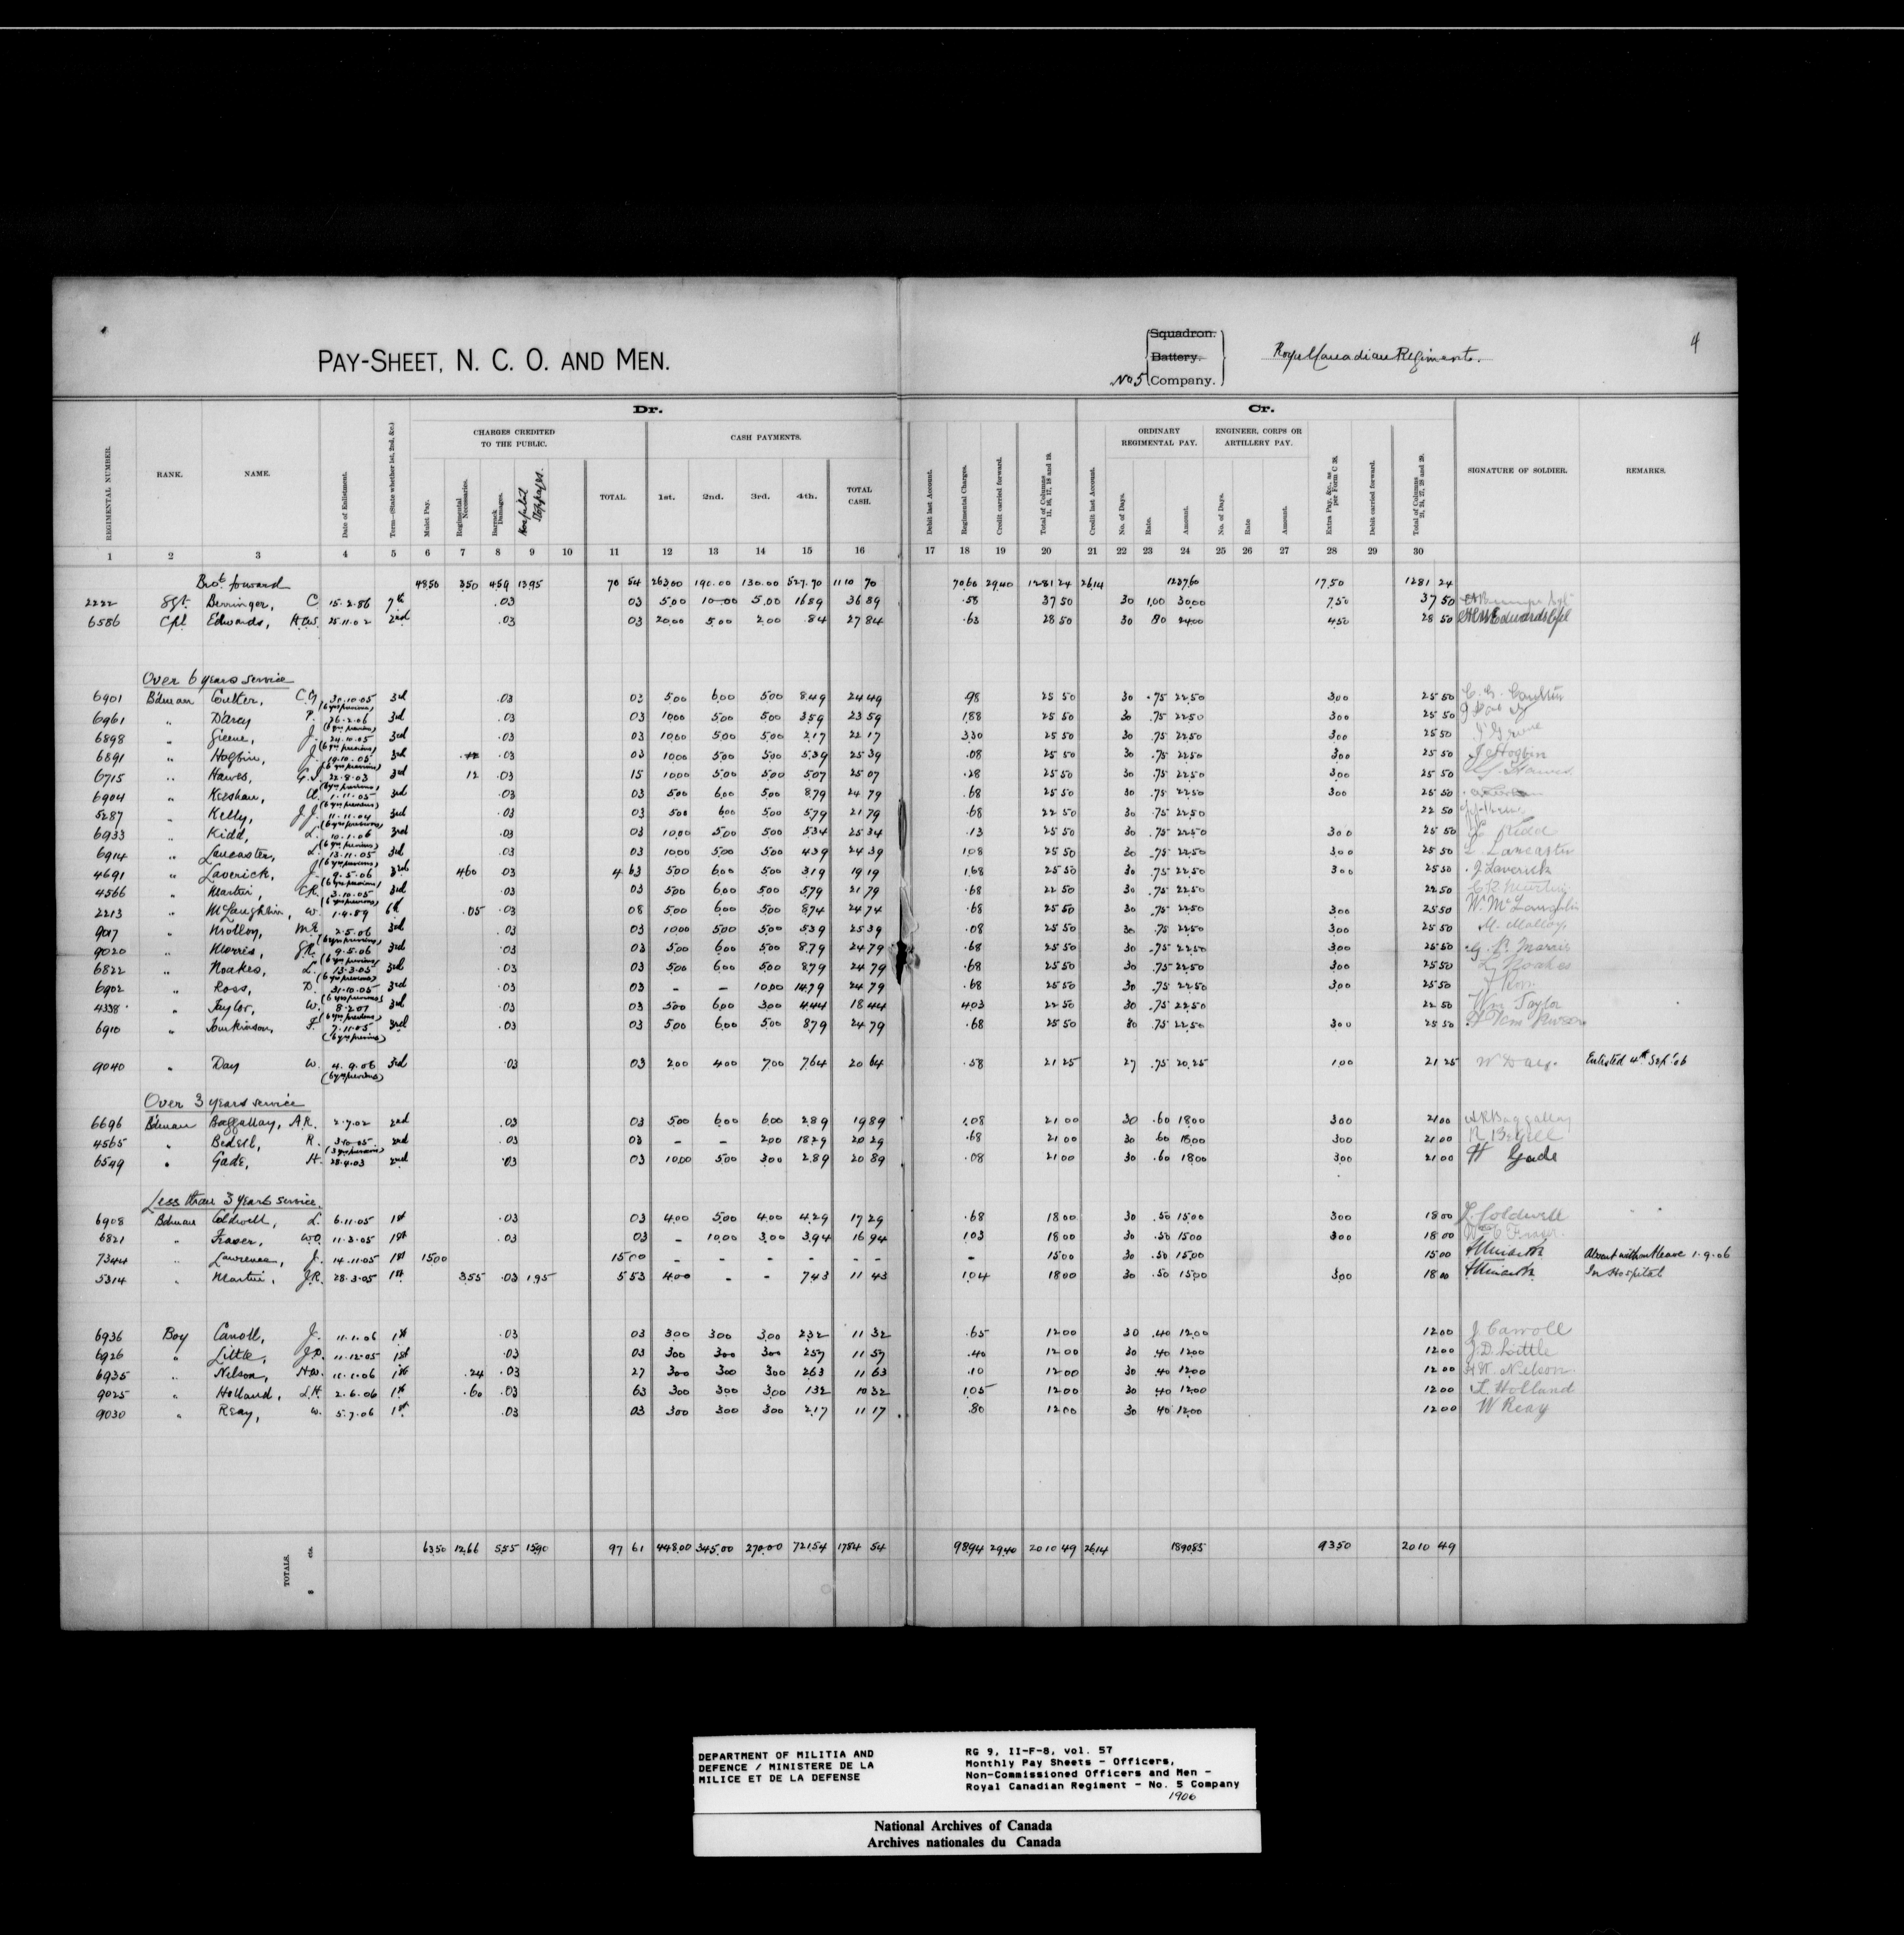 PAY-SHEET, N. C. O. AND MEN.
Squadron.
Battery.
No 5 Company.
Royal Canadian Regiment.
4
Dr.
Cr.
CHARGES CREDITED TO THE PUBLIC.
CASH PAYMENTS.
ORDINARY REGIMENTAL PAY.
ENGINEER, CORPS OR ARTILLERY PAY.
REGIMENTAL NUMBER. RANK. NAME. Date of Enlistment. Term—(State whether 1st, 2nd, &c.) Mulct Pay. Regimental Necessaries. Barrack Damages. Hospital Stoppages. TOTAL. 1st. 2nd. 3rd. 4th. TOTAL CASH. Debit last Account. Regimental Charges. Credit carried forward. Total of Columns 11, 16, 17, 18 and 19. Credit last Account. No. of Days. Rate. Amount. No. of Days. Rate Amount. Extra Pay, &c., as per Form C 38. Debit carried forward. Total of Columns 21, 24, 27, 28 and 29. SIGNATURE OF SOLDIER. REMARKS.
1 2 3 4 5 6 7 8 9 10 11 12 13 14 15 16 17 18 19 20 21 22 23 24 25 26 27 28 29 30
Brot forward 48.50 3.50 4.59 13.95 70 54 263.00 190.00 130.00 527.70 1110 70 70.60 29.40 1281 24 26.14 1237.60 17.50 1281 24
2222 Sgt. Berringer, C 15.2.86 7th .03 03 5.00 10.00 5.00 16.89 36 89 .58 37 50 30 1.00 30.00 7.50 37 50
6586 Cpl Edwards, H.W. 25.11.02 2nd .03 03 20.00 5.00 2.00 .84 27 84 .63 28 50 30 80 24.00 4.50 28 50 H W Edwards Cpl
Over 6 years service
6901 Bdman Coulter, C.G. 31.10.05 (6 yrs previous) 3rd .03 03 5.00 6.00 5.00 8.49 24 49 .98 25 50 30 .75 22.50 3.00 25 50
6961 " D'Arcy P. 26.2.06 (6 yrs previous) 3rd .03 03 10.00 5.00 5.00 3.59 23 59 1.88 25 50 30 .75 22.50 3.00 25 50
6898 " Greene, J. 24.10.05 (6 yrs previous) 3rd .03 03 10.00 5.00 5.00 2.17 22 17 3.30 25 50 30 .75 22.50 3.00 25 50 J Greene
6891 " Hogbin, J. 19.10.05 (6 yrs previous) 3rd .03 03 10.00 5.00 5.00 5.39 25 39 .08 25 50 30 .75 22.50 3.00 25 50 J Hogbin
6715 " Hawes, G.J. 22.8.03 (6 yrs previous) 3rd 12 .03 15 10.00 5.00 5.00 5.07 25 07 .28 25 50 30 .75 22.50 3.00 25 50 G. Hawes
6904 " Kershaw, A. 1.11.05 (6 yrs previous) 3rd .03 03 5.00 6.00 5.00 8.79 24 79 .68 25 50 30 .75 22.50 3.00 25 50
5287 " Kelly, J.J. 11.11.04 (6 yrs previous) 3rd .03 03 5.00 6.00 5.00 5.79 21 79 .68 22 50 30 .75 22.50 22 50
6933 " Kidd, L. 10.1.06 (6 yrs previous) 3rd .03 03 10.00 5.00 5.00 5.34 25 34 .13 25 50 30 .75 22.50 3.00 25 50 L Kidd
6914 " Lancaster, L. 13.11.05 (6 yrs previous) 3rd .03 03 10.00 5.00 5.00 4.39 24 39 1.08 25 50 30 .75 22.50 3.00 25 50 L. Lancaster
4691 " Laverick, J. 9.5.06 (6 yrs previous) 3rd 4.60 .03 4 63 5.00 6.00 5.00 3.19 19 19 1.68 25 50 30 .75 22.50 3.00 25 50 J Laverick
4566 " Martin, C.R. 3.10.05 (6 yrs previous) 3rd .03 03 5.00 6.00 5.00 5.79 21 79 .68 22 50 30 .75 22.50 22 50 C R Martin
2213 " McLaughlin, W. 1.4.89 6th .05 .03 08 5.00 6.00 5.00 8.74 24 74 .68 25 50 30 .75 22.50 3.00 25 50 W. McLaughlin
9017 " Molloy, M.E. 2.5.06 (6 yrs previous) 3rd .03 03 10.00 5.00 5.00 5.39 25 39 .08 25 50 30 .75 22.50 3.00 25 50 M. Malloy
9020 " Morris, G.R. 9.5.06 (6 yrs previous) 3rd .03 03 5.00 6.00 5.00 8.79 24 79 .68 25 50 30 .75 22.50 3.00 25 50 G. R. Morris
6822 " Noakes, L. 13.3.05 (6 yrs previous) 3rd .03 03 5.00 6.00 5.00 8.79 24 79 .68 25 50 30 .75 22.50 3.00 25 50 L Noakes
6902 " Ross, D. 31.10.05 (6 yrs previous) 3rd .03 03 – – 10.00 14.79 24 79 .68 25 50 30 .75 22.50 3.00 25 50
4338 " Taylor, W. 8.2.07 (6 yrs previous) 3rd .03 03 5.00 6.00 3.00 4.44 18 44 4.03 22 50 30 .75 22.50 22 50 Wm Taylor
6910 " Tomkinson, F. 7.11.05 (6 yrs previous) 3rd .03 03 5.00 6.00 5.00 8.79 24 79 .68 25 50 30 .75 22.50 3.00 25 50
9040 " Day W. 4.9.06 (6 yrs previous) 3rd .03 03 2.00 4.00 7.00 7.64 20 64 .58 21 25 27 .75 20.25 1.00 21 25 W Day. Enlisted 4th Sept. 06
Over 3 years service
6696 Bdman Baggallay, A.R. 2.7.02 2nd .03 03 5.00 6.00 6.00 2.89 19 89 1.08 21 00 30 .60 18.00 3.00 21 00 A R Baggallay
4565 " Bedell, R. 3.10.05 (3 yrs previous) 2nd .03 03 – – 2.00 18.29 20 29 .68 21 00 30 .60 18.00 3.00 21 00 R Bedell
6549 " Gade, H. 28.4.03 2nd .03 03 10.00 5.00 3.00 2.89 20 89 .08 21 00 30 .60 18.00 3.00 21 00 H Gade
Less than 3 years service.
6908 Bdman Coldwell, L. 6.11.05 1st .03 03 4.00 5.00 4.00 4.29 17 29 .68 18 00 30 .50 15.00 3.00 18 00 L. Coldwell
6821 " Fraser, W.O. 11.3.05 1st .03 03 – 10.00 3.00 3.94 16 94 1.03 18 00 30 .50 15.00 3.00 18 00
7344 " Lawrence, J. 14.11.05 1st 15.00 15 00 – – – – – – – 15 00 30 .50 15.00 15 00 Absent without leave 1.9.06
5314 " Martin, J.R. 28.3.05 1st 3.55 .03 1.95 5 53 4.00 – – 7.43 11 43 1.04 18 00 30 .50 15.00 3.00 18 00 In Hospital
6936 Boy Carroll, J. 11.1.06 1st .03 03 3.00 3.00 3.00 2.32 11 32 .65 12 00 30 .40 12.00 12 00 J. Carroll
6926 " Little, J.D. 11.12.05 1st .03 03 3.00 3.00 3.00 2.57 11 57 .40 12 00 30 .40 12.00 12 00 J. D. Little
6935 " Nelson, H.W. 11.1.06 1st .24 .03 27 3.00 3.00 3.00 2.63 11 63 .10 12 00 30 .40 12.00 12 00 H W. Nelson
9025 " Holland, L.H. 2.6.06 1st .60 .03 63 3.00 3.00 3.00 1.32 10 32 1.05 12 00 30 .40 12.00 12 00 L. Holland
9030 " Reay, W. 5.7.06 1st .03 03 3.00 3.00 3.00 2.17 11 17 .80 12 00 30 .40 12.00 12 00 W Reay
TOTALS. $ cts. 63.50 12.66 5.55 15.90 97 61 448.00 345.00 270.00 721.54 1784 54 98.94 29.40 2010 49 26.14 1890.85 93.50 2010 49
DEPARTMENT OF MILITIA AND
DEFENCE / MINISTERE DE LA
MILICE ET DE LA DEFENSE
RG 9, II-F-8, vol. 57
Monthly Pay Sheets - Officers,
Non-Commissioned Officers and Men -
Royal Canadian Regiment - No. 5 Company
1906
National Archives of Canada
Archives nationales du Canada